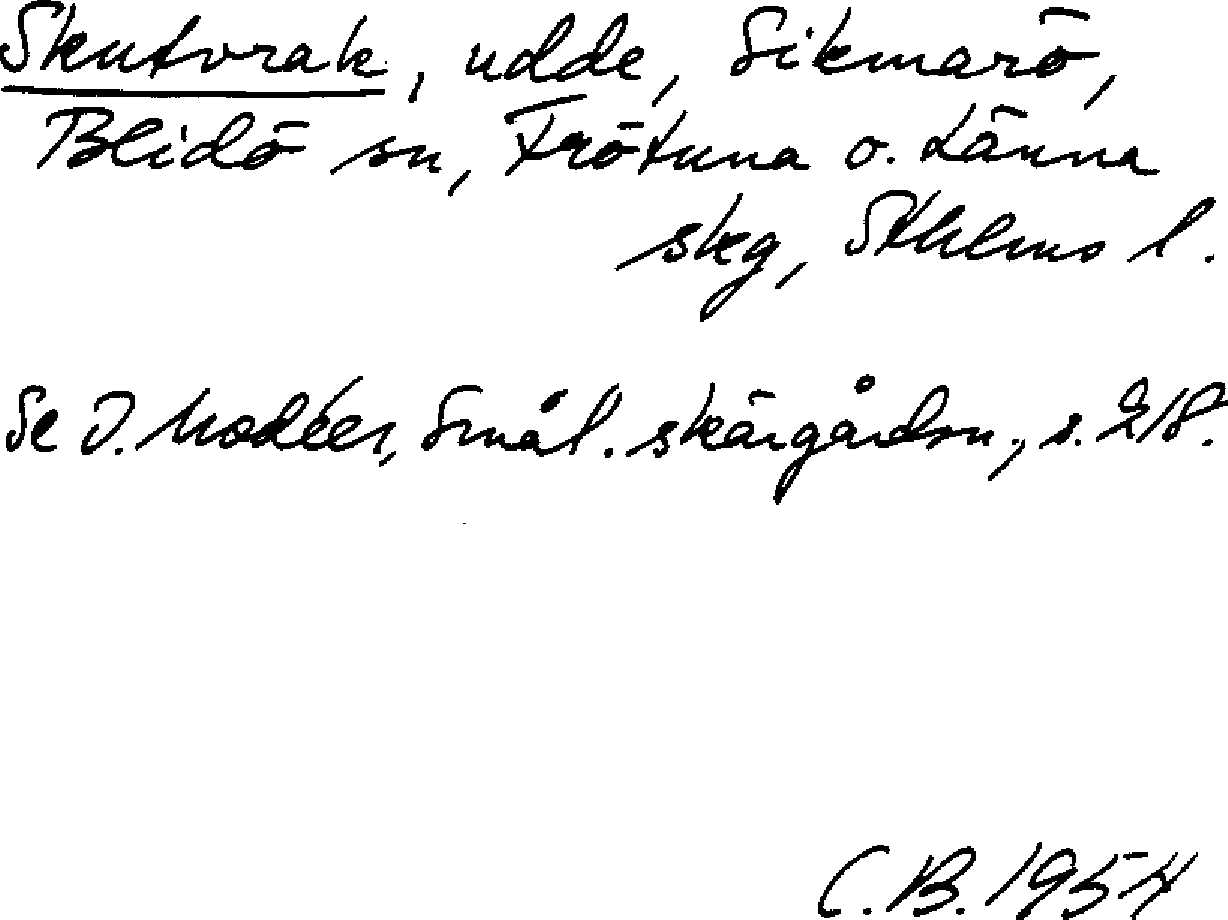 Skutvrak, udde, Sikmarö,
Blidö sn, Frötuna o. Länna
skg, Sthlms l.
Se I. Modéer, Smål. skärgårdsn., s. 218.
C.B. 1954